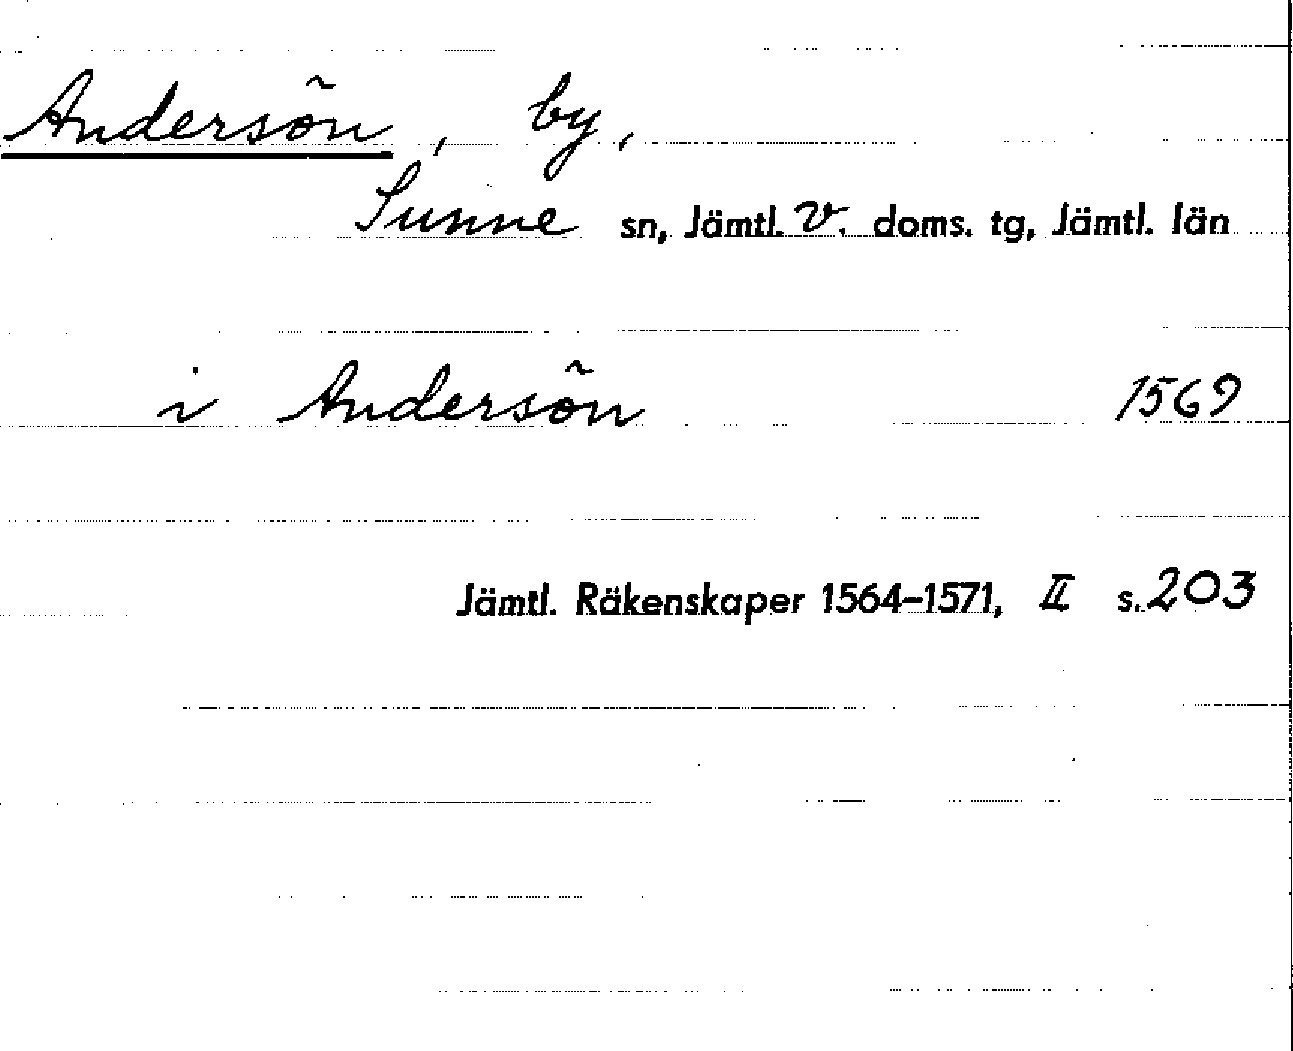 Andersön, by,
Sunne sn, Jämtl. V. doms. tg, Jämtl. län
i Andersön 1569
Jämtl. Räkenskaper 1564-1571, II s. 203